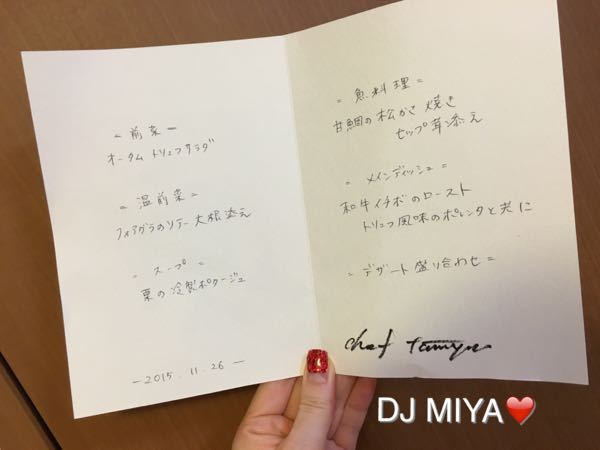 = 前菜 =
オータム トリュフサラダ
= 温前菜 =
フォアグラのソテー 大根添え
= スープ =
栗の冷製ポタージュ
- 2015. 11. 26 -
= 魚料理 =
甘鯛の松かさ焼き
セップ茸添え
= メインディッシュ =
和牛イチボのロースト
トリュフ風味のポレンタと共に
= デザート盛り合わせ =
chef
DJ MIYA❤️